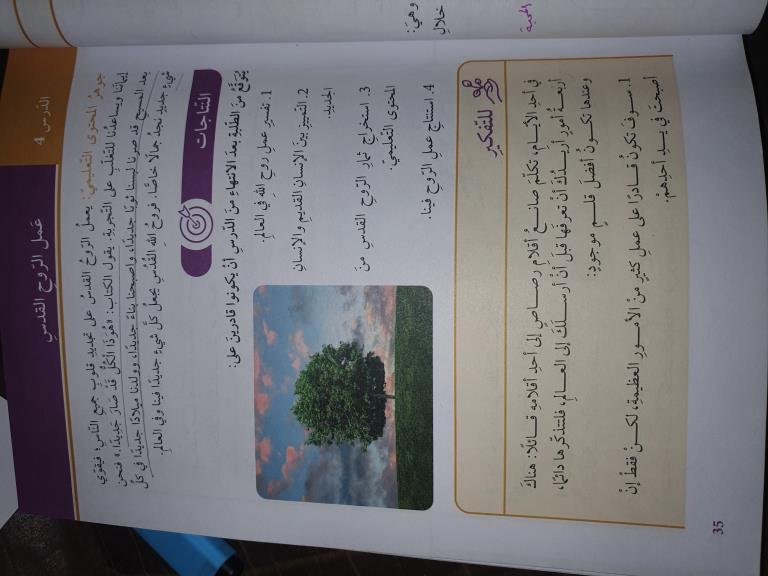 الدّرس 4
عَمل الرّوح القدسِ
جوهرُ المحتوى التّعليميّ: يعملُ الرّوحُ القدسُ على تجديدِ قلوبِ جميعِ النّاسِ؛ فيقوّي
إيماننا ويساعدُنا للتّغلّبِ على التّجربةِ. يقول الكتابُ: «هُوَذَا الْكُلُّ قَدْ صَارَ جَدِيدًا.» فنحن
بعد المسيحِ قد صرنا لبسنا ثوبًا جديدًا، وأصبحنا بناءً جديدًا، وولدنا ميلادًا جديدًا في كلّ
شيءٍ جديدٍ نجدُ جمالًا خاصًّا. فروحُ اللهِ القُدّسِ يجعلُ كلَّ شيءٍ جديدًا فينا وفي العالمِ.
النّتاجات
يُتوَقّعُ منَ الطّلبةِ بعدَ الانتهاءِ منَ الدّرسِ أنْ يكونوا قادرينَ على:
1. تفسيرِ عملِ روحِ اللهِ في العالمِ.
2. التّمييزِ بينَ الإنسانِ القديمِ والإنسانِ
الجديدِ.
3. استخراجِ ثمارِ الرّوحِ القدسِ منَ
المحتوى التّعليميّ.
4. استنتاجِ عملِ الرّوحِ فينا.
للتّفكيرِ
في أحدِ الأيّامِ، تكلّمَ صانعُ أقلامِ رصاصٍ إلى أحدِ أقلامهِ قائلًا: هناكَ
أربعةُ أمورٍ أريدُكَ أنْ تعرفَها قبلَ أنْ أرسلَكَ إلى العالمِ، فلتتذكّرها دائمًا،
وعندها تكونُ أفضلَ قلمٍ موجودٍ:
1. سوفَ تكونُ قادرًا على عملِ كثيرٍ منَ الأمورِ العظيمةِ، لكنْ فقطْ إنْ
أصبحتَ في يدِ أحدِهمْ.
35
خلالِ
وهيَ:
المحبة